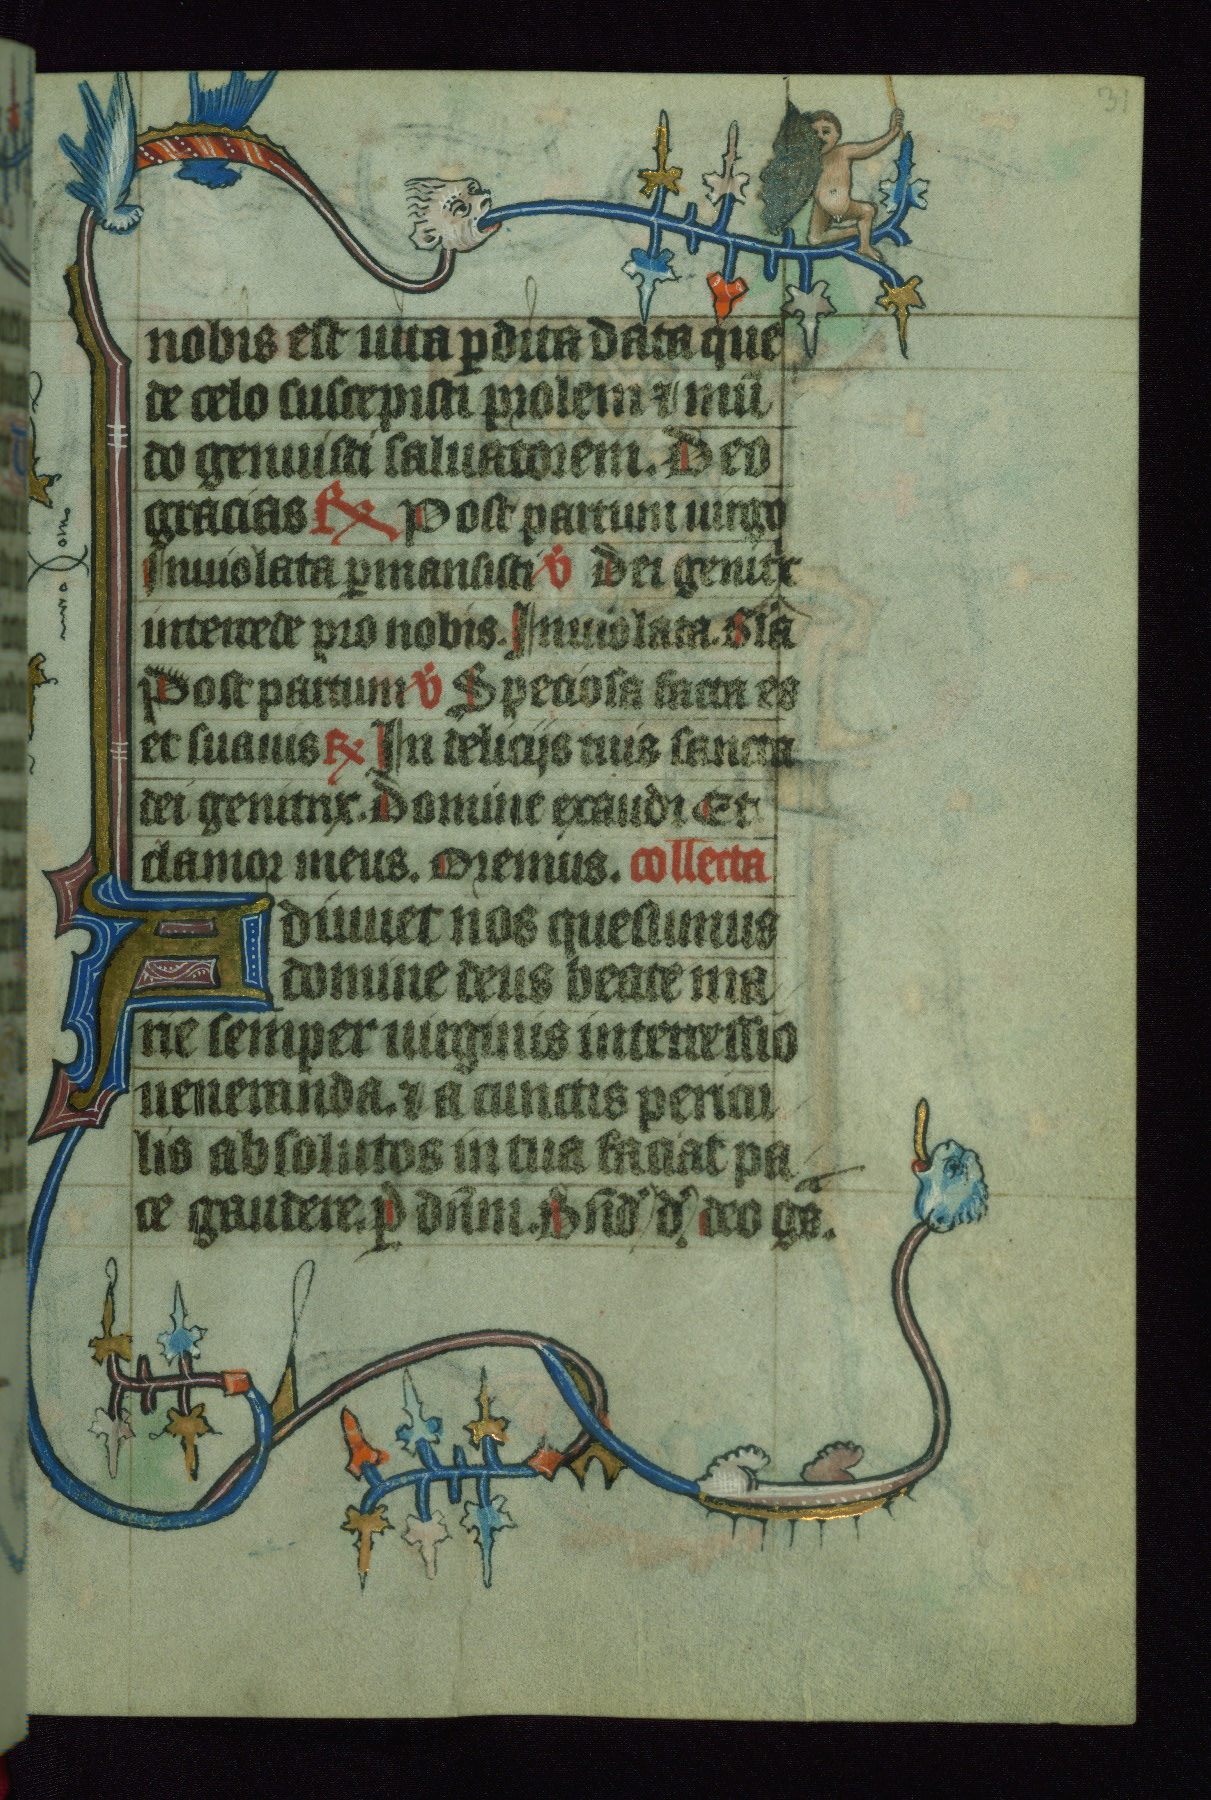 31
nobis est uita pdita data que
de celo suscepisti prolem ⁊ mū
do genuisti saluatorem. Deo
gracias ℟ Post partum uirgo
Inuiolata pmansisti ℣ Dei genitx
intercede pro nobis. Inuiolata. Gl̄a
Post partum ℣ Speciosa facta es
et suauis ℟ In delicijs tuis sancta
dei genitrix. Domine exaudi Et
clamor meus. Oremus. collecta
Adiuuet nos quesumus
domine deus beate ma
rie semper uirginis intercessio
ueneranda. ⁊ a cunctis pericu
lis absolutos in tua faciat pa
ce gaudere. p dn̄m. deo gr̄a.